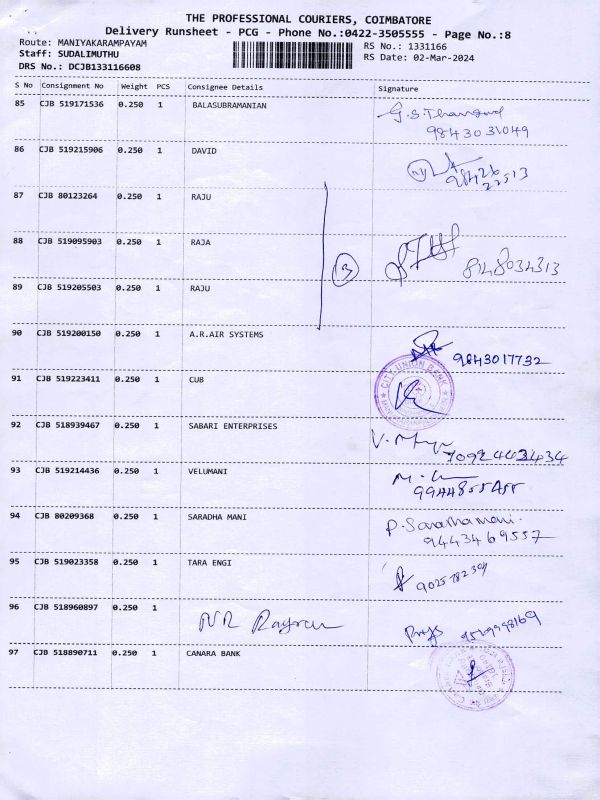 THE PROFESSIONAL COURIERS, COIMBATORE
Delivery Runsheet - PCG - Phone No.:0422-3505555 - Page No.:8
Route: MANIYAKARAMPAYAM RS No.: 1331166
Staff: SUDALIMUTHU RS Date: 02-Mar-2024
DRS No.: DCJB133116608
S No Consignment No Weight PCS Consignee Details Signature
85 CJB 519171536 0.250 1 BALASUBRAMANIAN
9843031049
86 CJB 519215906 0.250 1 DAVID
98426
22513
87 CJB 80123264 0.250 1 RAJU
88 CJB 519095903 0.250 1 RAJA
3 8148034313
89 CJB 519205503 0.250 1 RAJU
90 CJB 519200150 0.250 1 A.R.AIR SYSTEMS
9843017732
91 CJB 519223411 0.250 1 CUB
CITY UNION BANK
92 CJB 518939467 0.250 1 SABARI ENTERPRISES
7092443434
93 CJB 519214436 0.250 1 VELUMANI
94 CJB 80209368 0.250 1 SARADHA MANI
P. Saradhamani.
9443469557
95 CJB 519023358 0.250 1 TARA ENGI
96 CJB 518960897 0.250 1
97 CJB 518890711 0.250 1 CANARA BANK